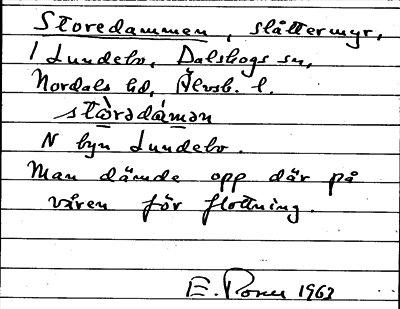 Storedammen, slåttermyr,
1 Lundebo, Dalskogs sn,
Nordals hd, Älvsb. l.
stòrədámən
N byn Lundebo.
Man dämde opp där på
våren för flottning.
E. 1963